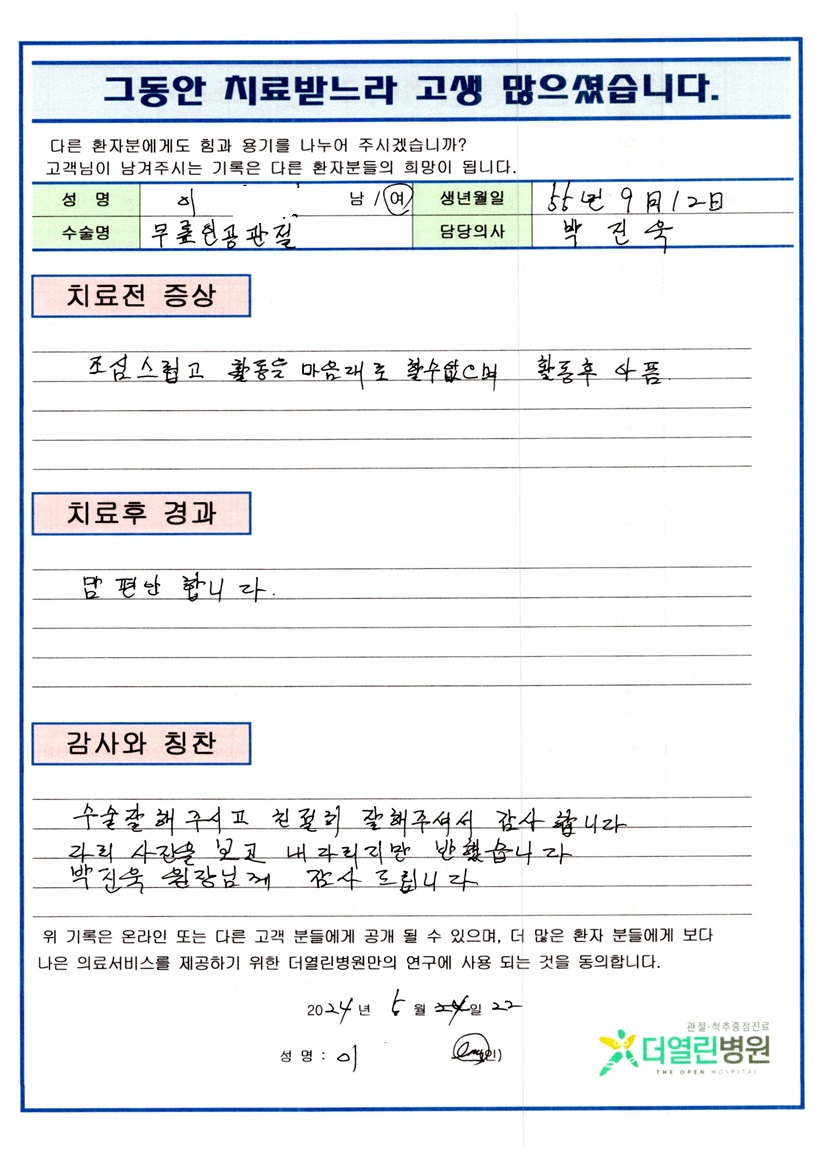 그동안 치료받느라 고생 많으셨습니다.
다른 환자분에게도 힘과 용기를 나누어 주시겠습니까?
고객님이 남겨주시는 기록은 다른 환자분들의 희망이 됩니다.
성 명 이 남 / 여 생년월일 55년 9月 12日
수술명 무릎인공관절 담당의사 박 진 욱
치료전 증상
조심스럽고 활동을 마음대로 할수없으며 활동후 아픔.
치료후 경과
맘 편안 합니다.
감사와 칭찬
수술잘해주시고 친절히 잘해주셔서 감사 합니다
다리 사진을 보고 내다리지만 반했습니다
박진욱 원장님께 감사 드립니다
위 기록은 온라인 또는 다른 고객 분들에게 공개 될 수 있으며, 더 많은 환자 분들에게 보다
나은 의료서비스를 제공하기 위한 더열린병원만의 연구에 사용 되는 것을 동의합니다.
2024년 5월 24일 22
성 명 : 이 인)
관절·척추중점진료
더열린병원
THE OPEN HOSPITAL